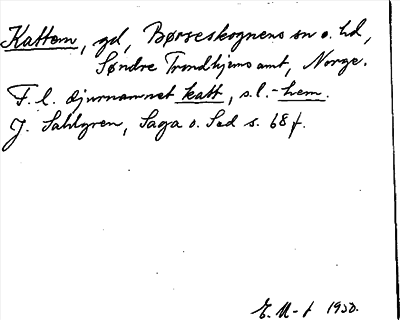 Kattem, gd, Børseskognens sn o. hd,
Søndre Trondhjems amt, Norge.
F.l. djurnamnet katt, s.l. -hem.
J. Sahlgren, Saga o. Sed s. 68 f.
E. M-t 1930.